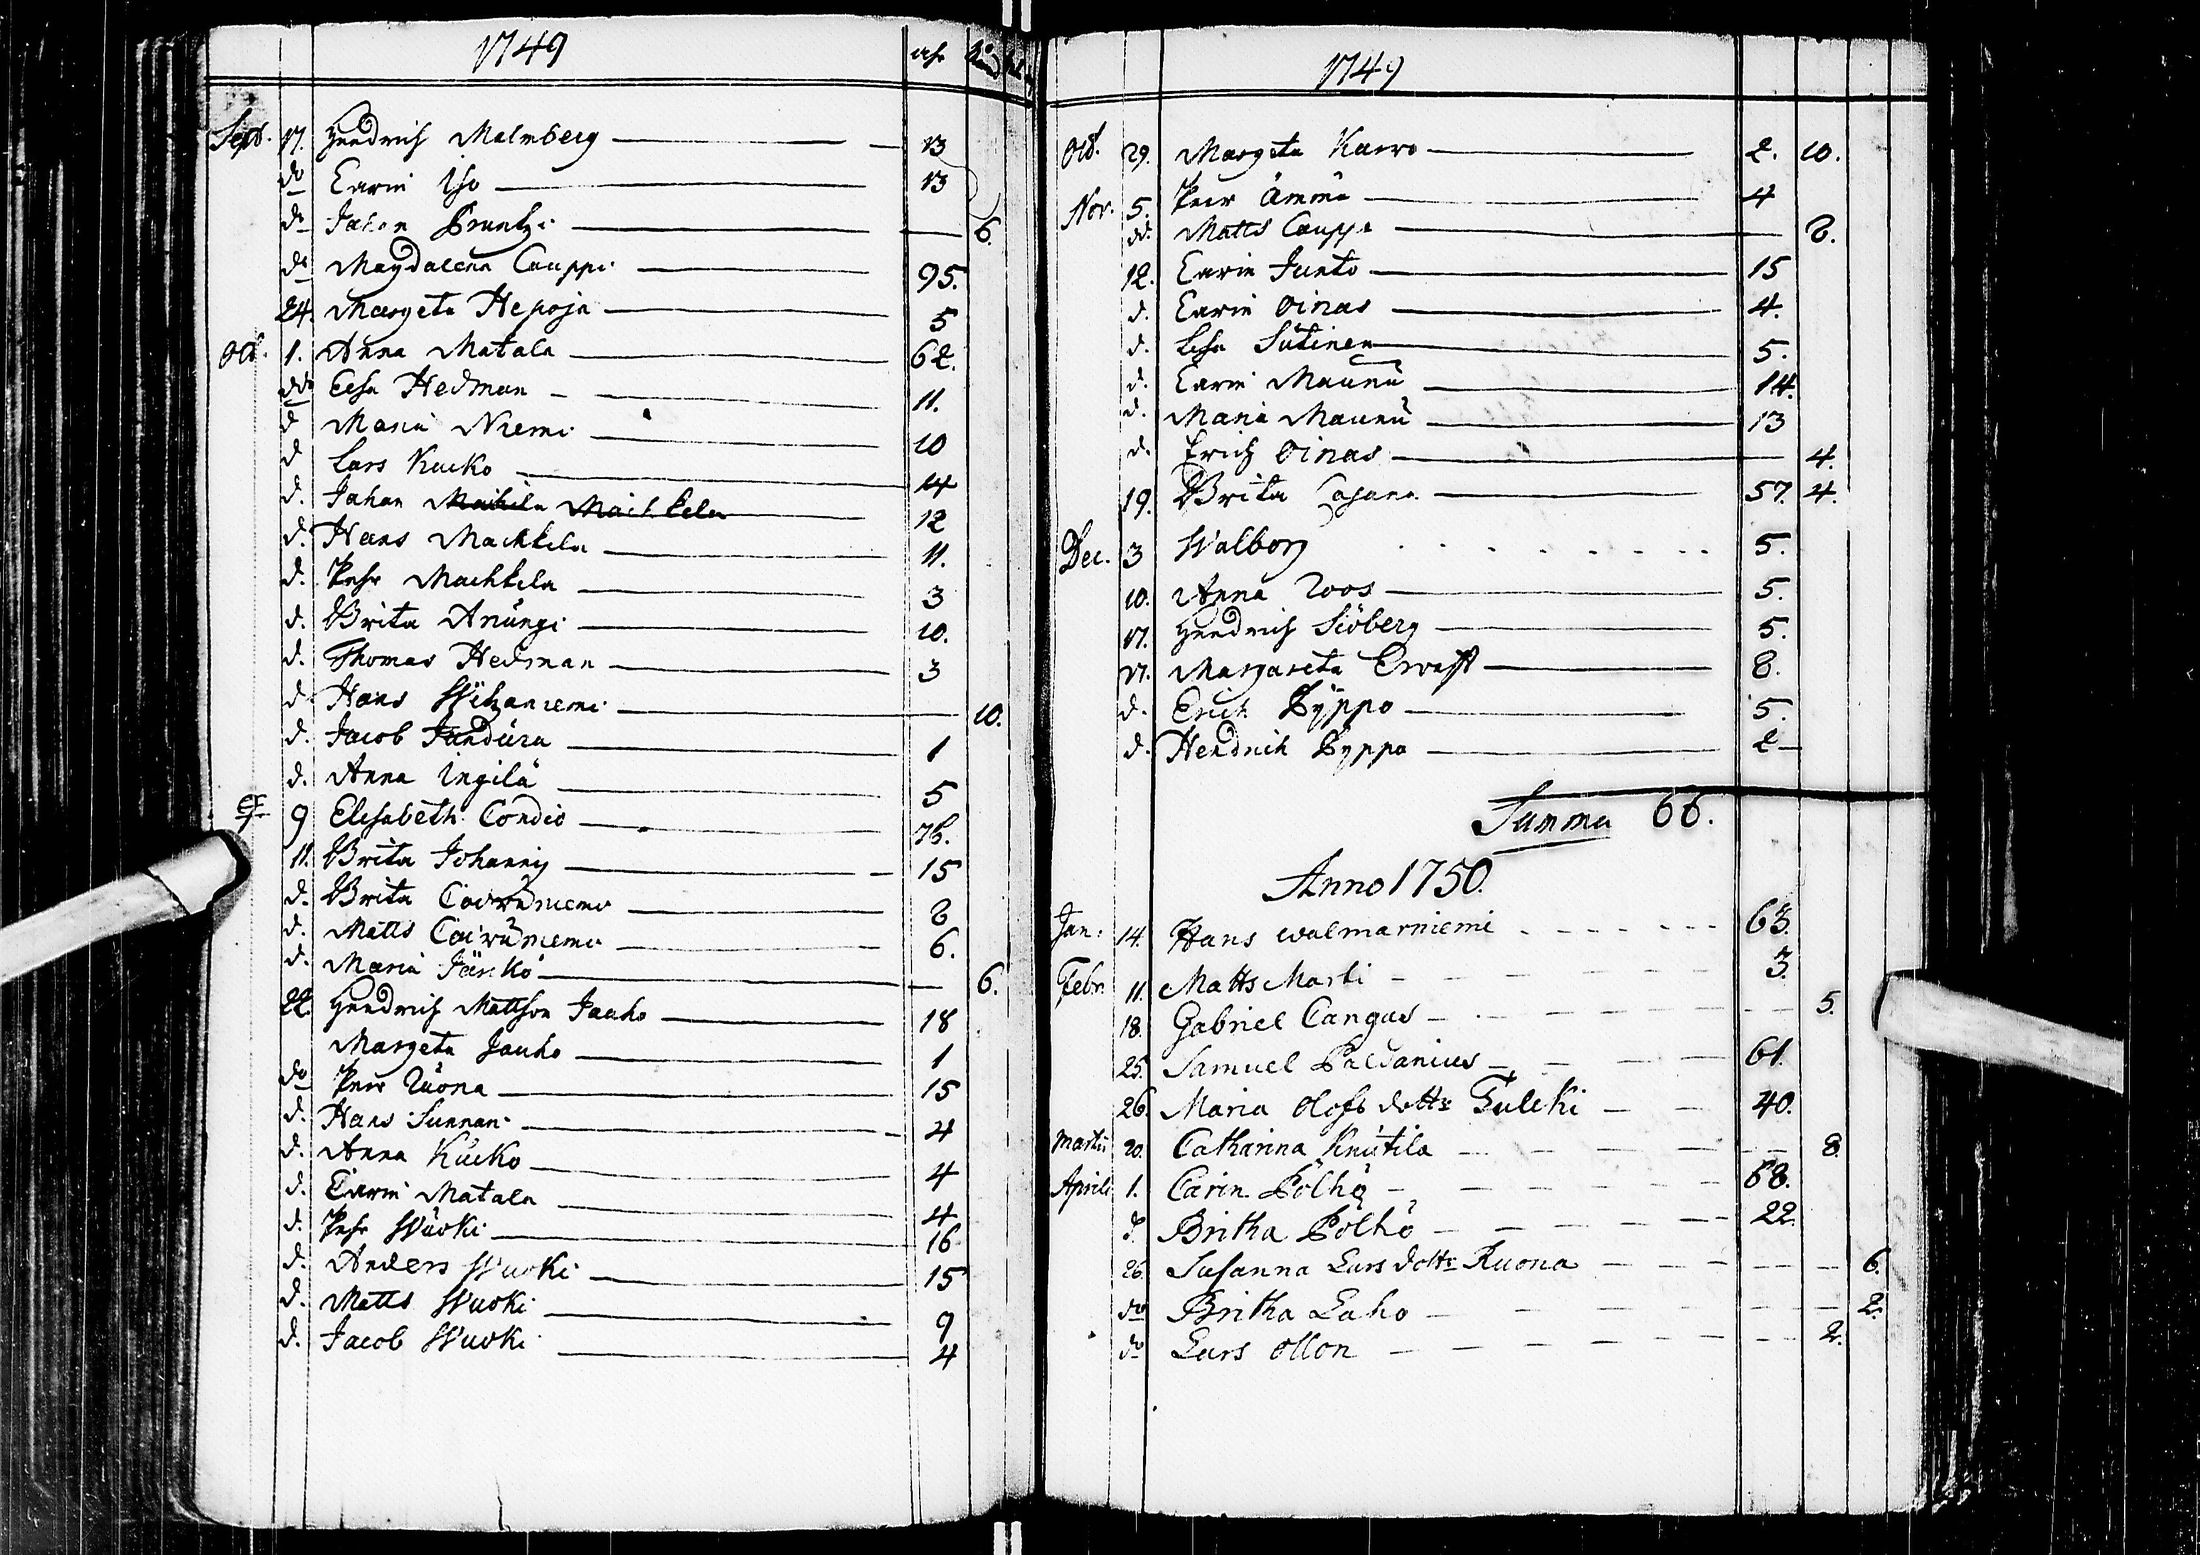 1749
åhr
Sept. 17. Hendrich Malmberg 13
do Carin Iso 13
do Johan Pruntzi 6.
do Magdalena Cauppi 95.
24. Margeta Hepoja 5
Oct. 1. Anna Matala 62.
do Elsa Hedman 11.
d Maria Niemi 10
d Lars Kucko 14
d. Johan Maihkela 12
d. Hans Machkela 11.
d. Pehr Machkela 3
d. Brita Anungi 10.
d. Thomas Hedman 3
d. Hans Witzaniemi 10.
d. Jacob Jundura 1
d. Anna Ingilä 5
9 Elisabeth Cordio 76.
11. Brita Johanny 15
d. Brita Coiruniemi 8
d. Matts Coiruniemi 6.
d. Maria Jänkö 6.
22. Hendrich Mattson Jauho 18
Margeta Jauho 1
do Pehr Ruona 15
d. Hans Sunnari 4
d. Anna Kucko 4
d. Carin Matala 4
d. Pehr Wuoki 16
d. Anders Wuoki 15
d. Matts Wuoki 9
d. Jacob Wuoki 4
1749
Oct. 29. Margeta Karro 2. 10.
Nov. 5. Pehr Ämmä 4
do. Matts Cauppi 8.
12. Carin Junto 15
d. Carin Oinas 4.
d. Lisa Sutinen 5.
d. Carin Maunu 14.
d. Maria Maunu 13
d. Erich Oinas 4.
19. Brita Cajana 57. 4.
Dec. 3 Walborg 5.
10. Anna Roos 5.
17. Hendrich Siöberg 5.
17. Margareta Ervast 8.
d. Erich Pyppo 5.
d. Hendrich Pyppo 2
Summa 66.
Anno 1750.
Jan. 14. Hans walmarniemi 63.
Febr. 11. Matts Marti 3.
18. Gabriel Cangas 5.
25. Samuel Paldanius 61.
26. Maria Olofs dottr Tulcki 40.
Martii 20. Catharina Knutila 8.
Aprili 1. Carin Pölhö 68.
d. Britha Pölhö 22.
26. Susanna Lars dottr Ruona 6.
do Britha Laho 2.
do Lars Ollon 2.